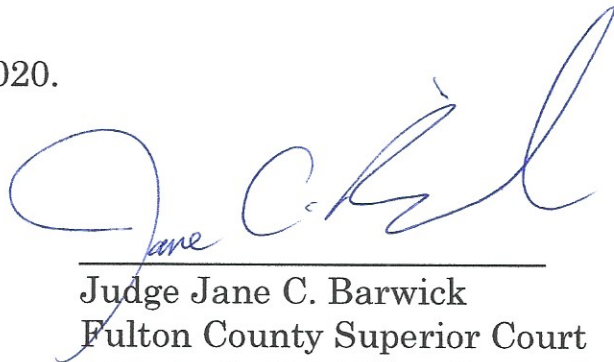 020.
Jane C.
Judge Jane C. Barwick
Fulton County Superior Court